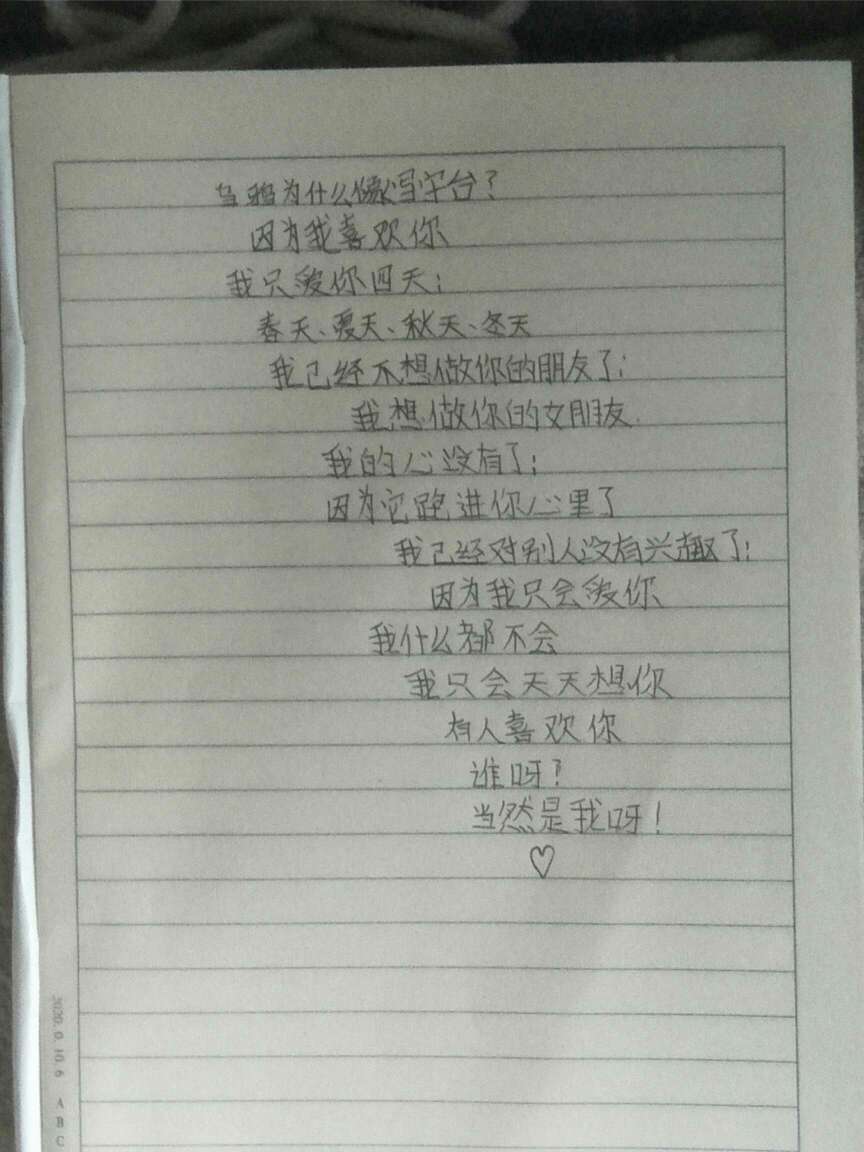 乌鸦为什么像写字台？
因为我喜欢你
我只爱你四天；
春天、夏天、秋天、冬天
我已经不想做你的朋友了；
我想做你的女朋友.
我的心没有了；
因为它跑进你心里了
我已经对别人没有兴趣了；
因为我只会爱你
我什么都不会
我只会天天想你
有人喜欢你
谁呀？
当然是我呀！
A B C